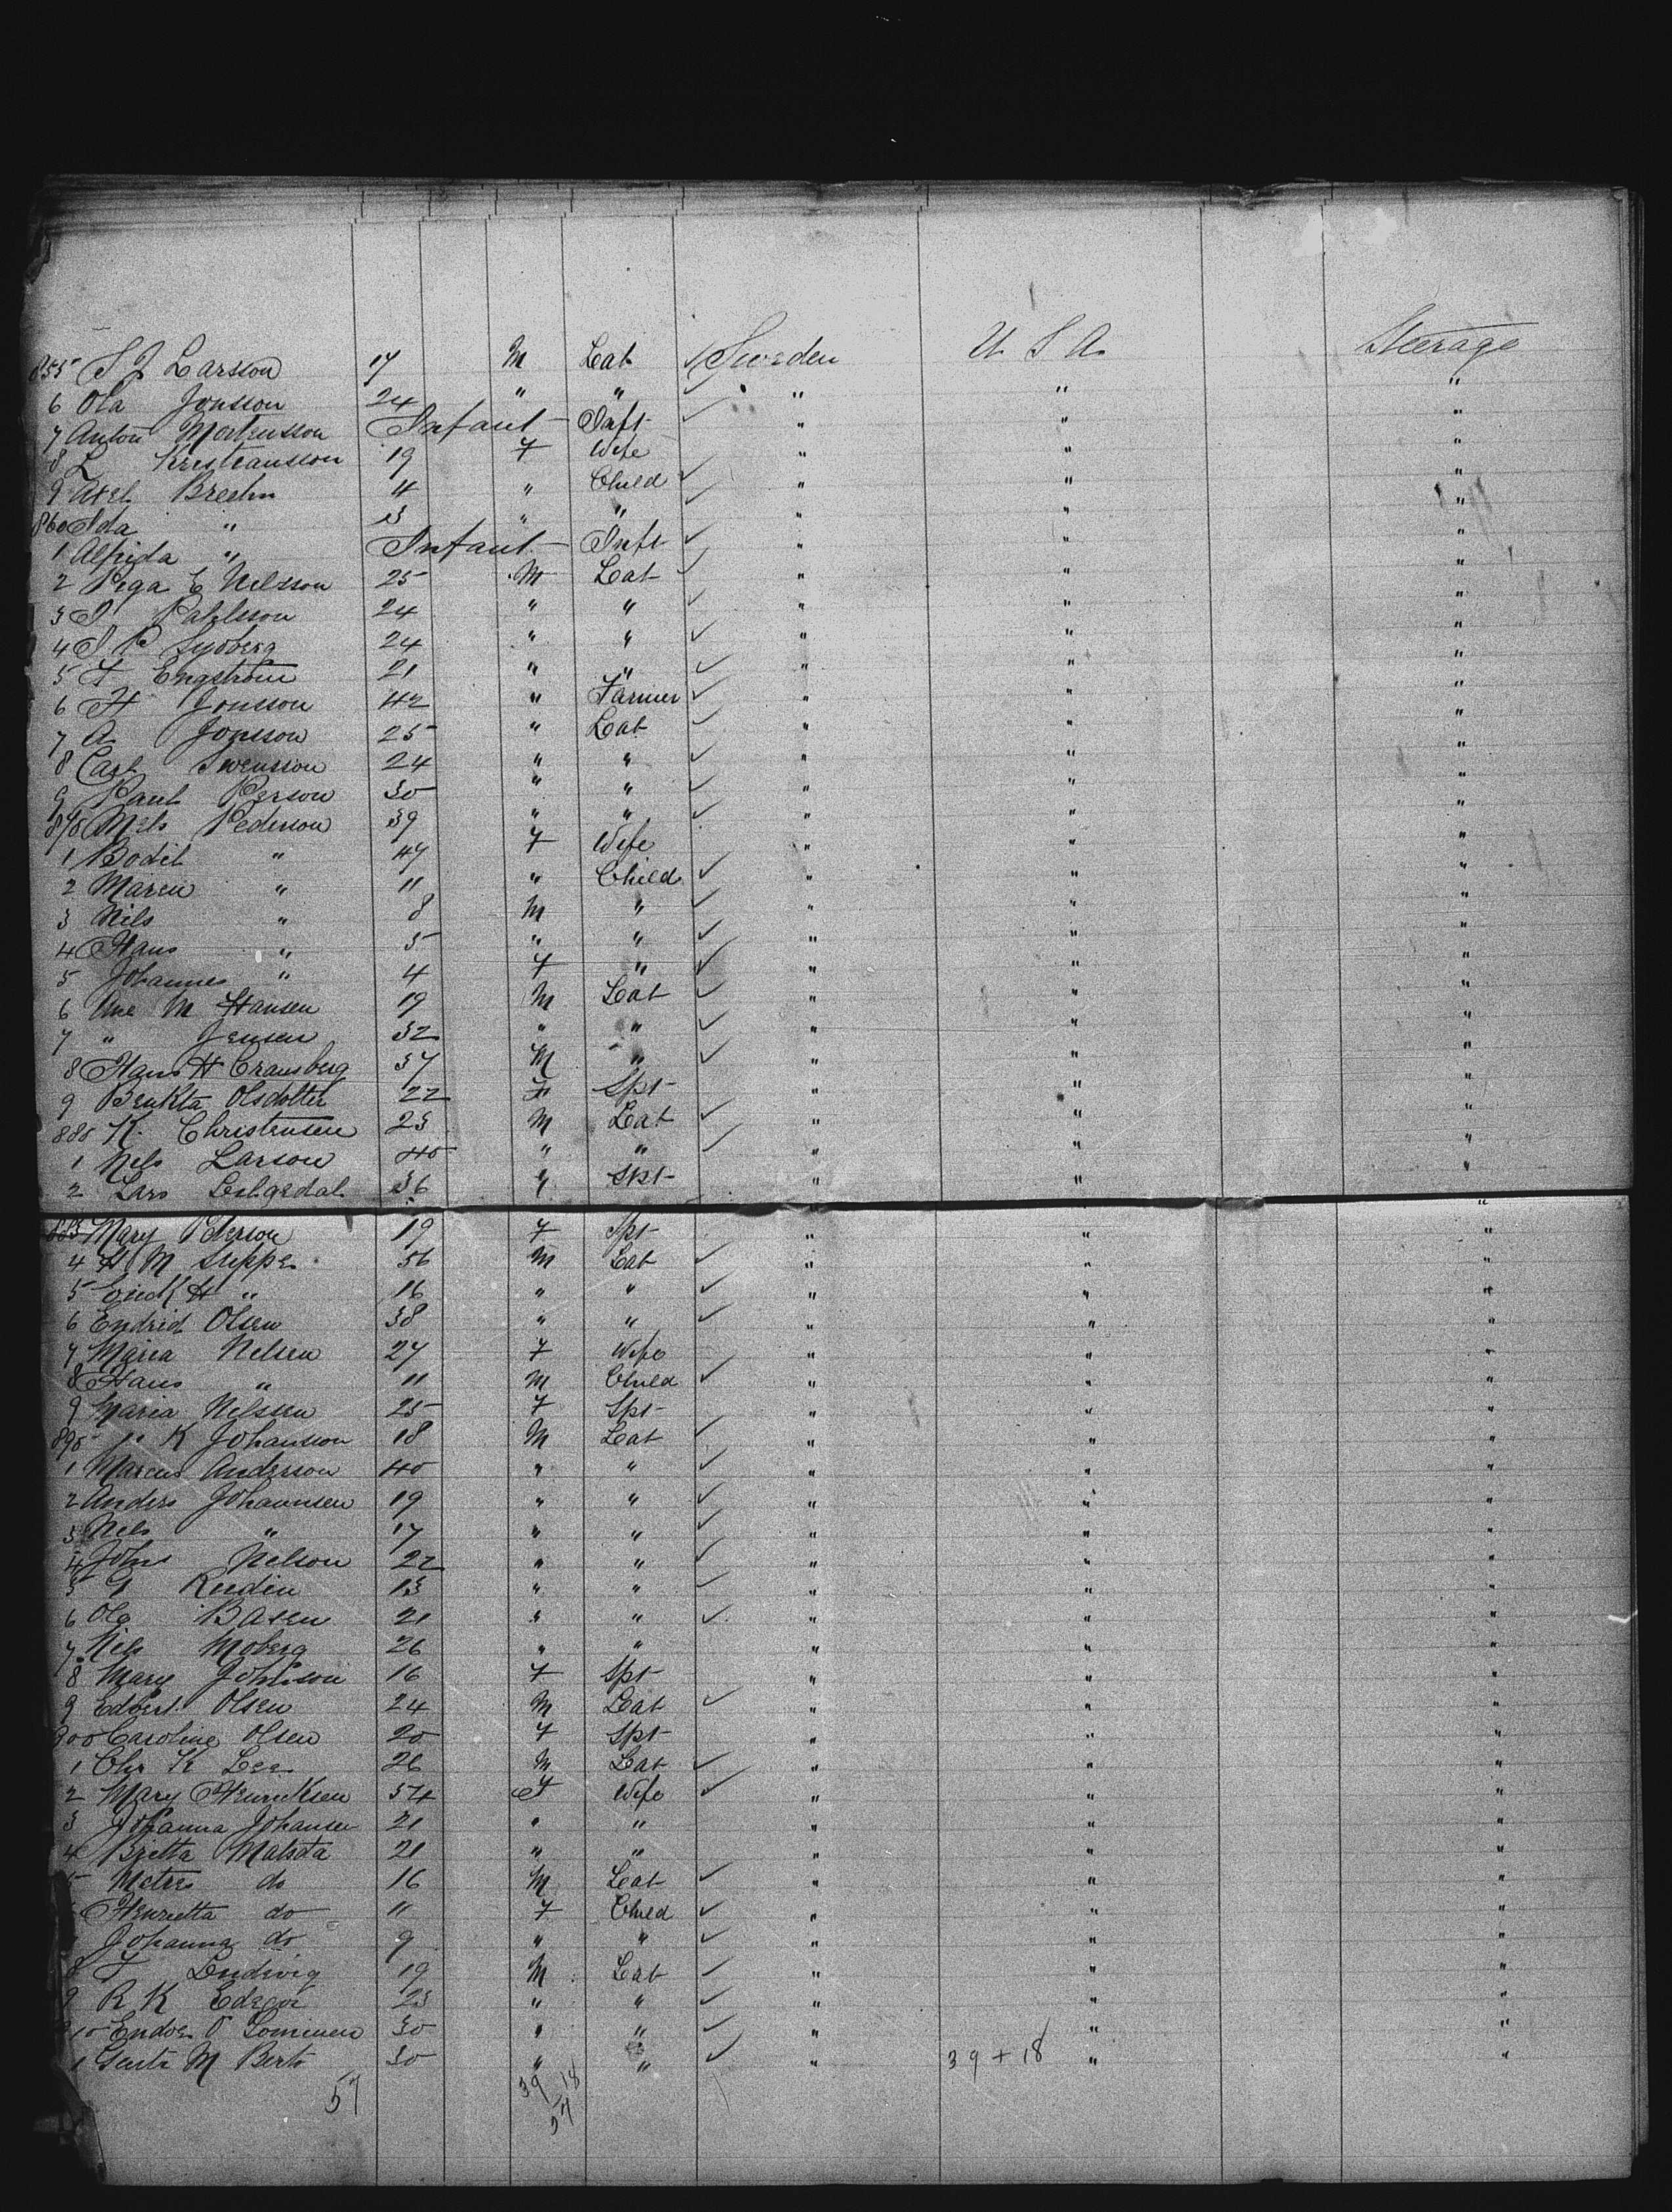 855 S J Larsson 17 M Lab ✓ Sweden U S A Steerage
6 Ola Jonsson 24 " " ✓ " " "
7 Anton Mortensson Infant Inft ✓ " " "
8 L Kristiansson 19 F Wife " " "
9 Axel Breslin 4 " Child ✓ " " "
860 Ida " 3 " " ✓ " " "
1 Alfrida " Infant Inft ✓ " " "
2 E Nilsson 25 M Lab ✓ " " "
3 Pahlsson 24 " " ✓ " " "
4 S P Syoberg 24 " " ✓ " " "
5 F Engstrom 21 " " ✓ " " "
6 H Jonsson 42 " Farmer ✓ " " "
7 A Jonsson 25 " Lab ✓ " " "
8 Carl Swensson 24 " " ✓ " " "
9 Paul Person 30 " " ✓ " " "
870 Nils Pederson 39 " " ✓ " " "
1 Bodil " 47 F Wife " " "
2 Maren " 11 " Child ✓ " " "
3 Nils " 8 M " ✓ " " "
4 Hans " 5 " " ✓ " " "
5 Johannes " 4 F " ✓ " " "
6 Ane M Hansen 19 M Lab ✓ " " "
7 " Jensen 32 " " ✓ " " "
8 Hans H Cransberg 37 M " ✓ " " "
9 Benkta Olsdotter 22 F Spt " " "
880 K. Christensen 23 M Lab ✓ " " "
1 Nels Larson 40 " " ✓ " " "
2 Lars 36 " Spt " " "
883 Mary Peterson 19 F Spt " " "
4 H M Steppe 56 M Lab ✓ " " "
5 Erick H " 16 " " ✓ " " "
6 Endrid Olsen 38 " " ✓ " " "
7 Maria Nelsen 27 F Wife " " "
8 Hans " 11 M Child ✓ " " "
9 Maria Nelssen 25 F Spt " " "
890 " K Johansson 18 M Lab ✓ " " "
1 Marcus Anderson 40 " " ✓ " " "
2 Anders Johannsen 19 " " ✓ " " "
3 Nels " 17 " " ✓ " " "
4 John Nelson 22 " " ✓ " " "
5 Rudin 13 " " ✓ " " "
6 Ola Basen 21 " " ✓ " " "
7 Nils Moberg 26 " " " " "
8 Mary Johnson 16 F Spt " " "
9 Edbert Olsen 24 M Lab ✓ " " "
900 Caroline Olsen 20 F Spt " " "
1 Chr K Lee 26 M Lab ✓ " " "
2 Mary Henricksen 54 F Wife ✓ " " "
3 Johanna Johansen 21 " " " " "
4 Bretta Matsota 21 " " " " "
5 do 16 M Lab ✓ " " "
Henrietta do 11 F Child ✓ " " "
Johanna do 9 " " ✓ " " "
8 F Ludwig 19 M Lab ✓ " " "
9 R K 23 " " ✓ " " "
910 O 30 " " ✓ " " "
1 M 30 " " ✓ " 39 + 18 " "
57 39 18
57